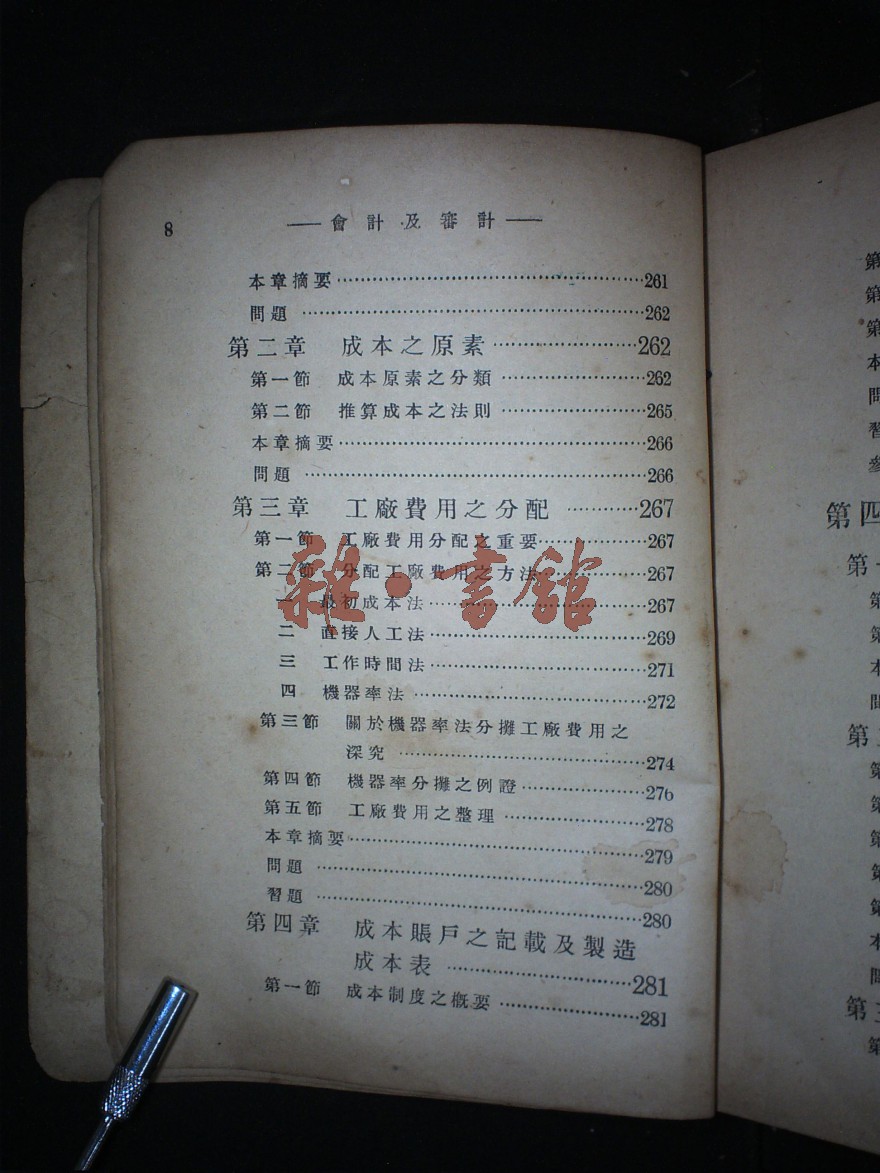 8
會計及審計
本章摘要 261
問題 262
第二章 成本之原素 262
第一節 成本原素之分類 262
第二節 推算成本之法則 265
本章摘要 266
問題 266
第三章 工廠費用之分配 267
第一節 工廠費用分配之重要 267
第二節 分配工廠費用之方法 267
一 最初成本法 267
二 直接人工法 269
三 工作時間法 271
四 機器率法 272
第三節 關於機器率法分攤工廠費用之
深究 274
第四節 機器率分攤之例證 276
第五節 工廠費用之整理 278
本章摘要 279
問題 280
習題 280
第四章 成本賬戶之記載及製造
成本表 281
第一節 成本制度之概要 281
雜·書館
第
第
第
本
問
習
參
第四
第一
第
第
本
問
第
第
第
第
第
第
本
問
第三
第